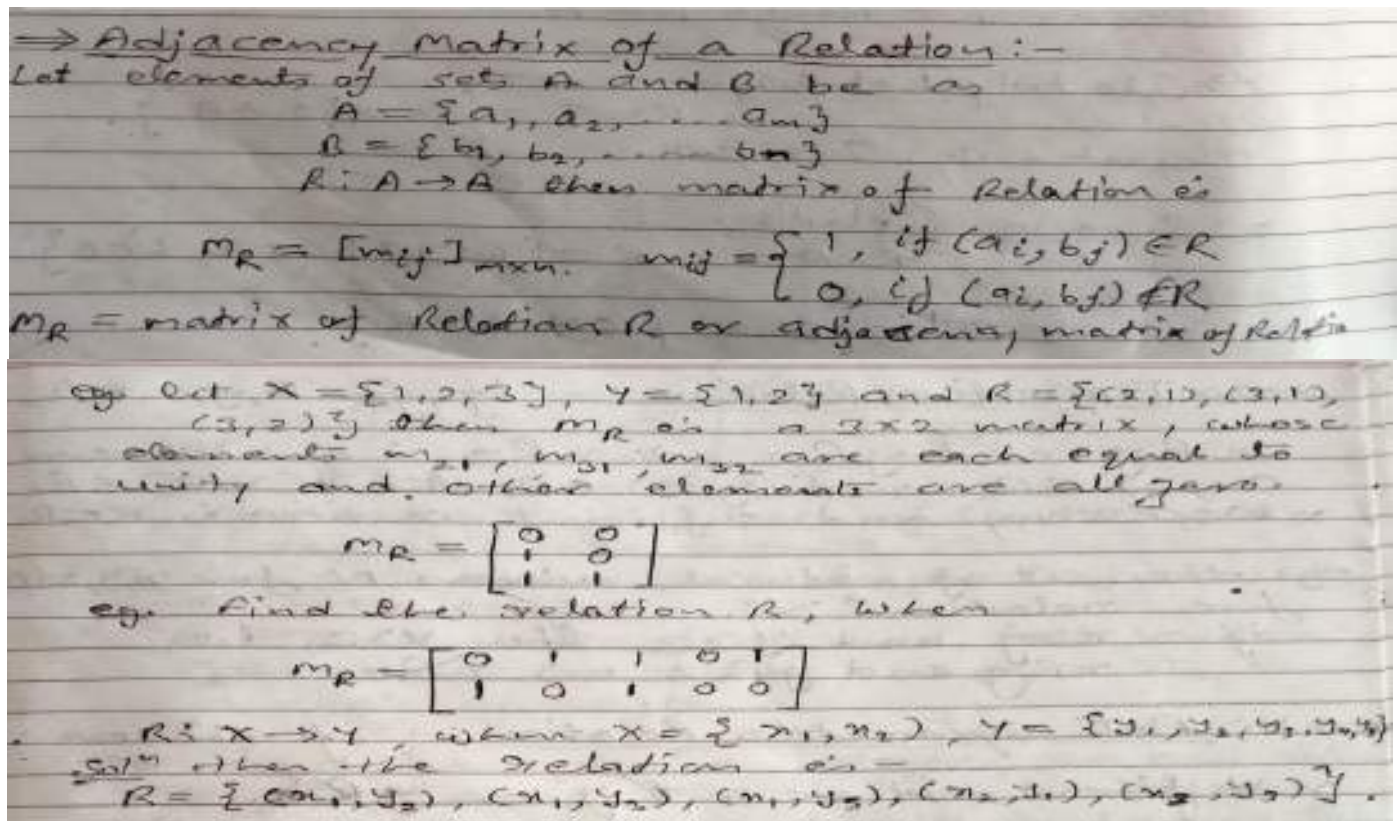 ⇒ Adjacency Matrix of a Relation :-
Let elements of sets A and B be as
A = {a1, a2, ..... am}
B = {b1, b2, ..... bn}
R: A → A then matrix of Relation is
MR = [mij] mxn. mij = { 1, if (ai, bj) ∈ R
0, if (ai, bj) ∉ R
MR = matrix of Relation R or matrix of Relatio
eg. Let X = {1, 2, 3}, Y = {1, 2} and R = {(2,1), (3,1),
(3,2)} then MR is a 3x2 matrix, whose
elements m21, m31, m32 are each equal to
unity and other elements are all zero.
MR = [ 0 0
1 0
1 1 ]
eg. Find the relation R, when
MR = [ 0 1 1 0 1
1 0 1 0 0 ]
R: X → Y, when X = { x1, x2 ), Y = {y1, y2, y3, y4, y5}
Solⁿ then the relation is -
R = { (x1, y2), (x1, y3), (x1, y5), (x2, y1), (x2, y3) }.